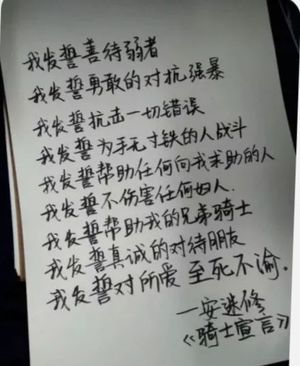 我发誓善待弱者
我发誓勇敢的对抗强暴
我发誓抗击一切错误
我发誓为手无寸铁的人战斗
我发誓帮助任何向我求助的人
我发誓不伤害任何妇人.
我发誓帮助我的兄弟骑士
我发誓真诚的对待朋友
我发誓对所爱 至死不渝.
—安迷修
《骑士宣言》